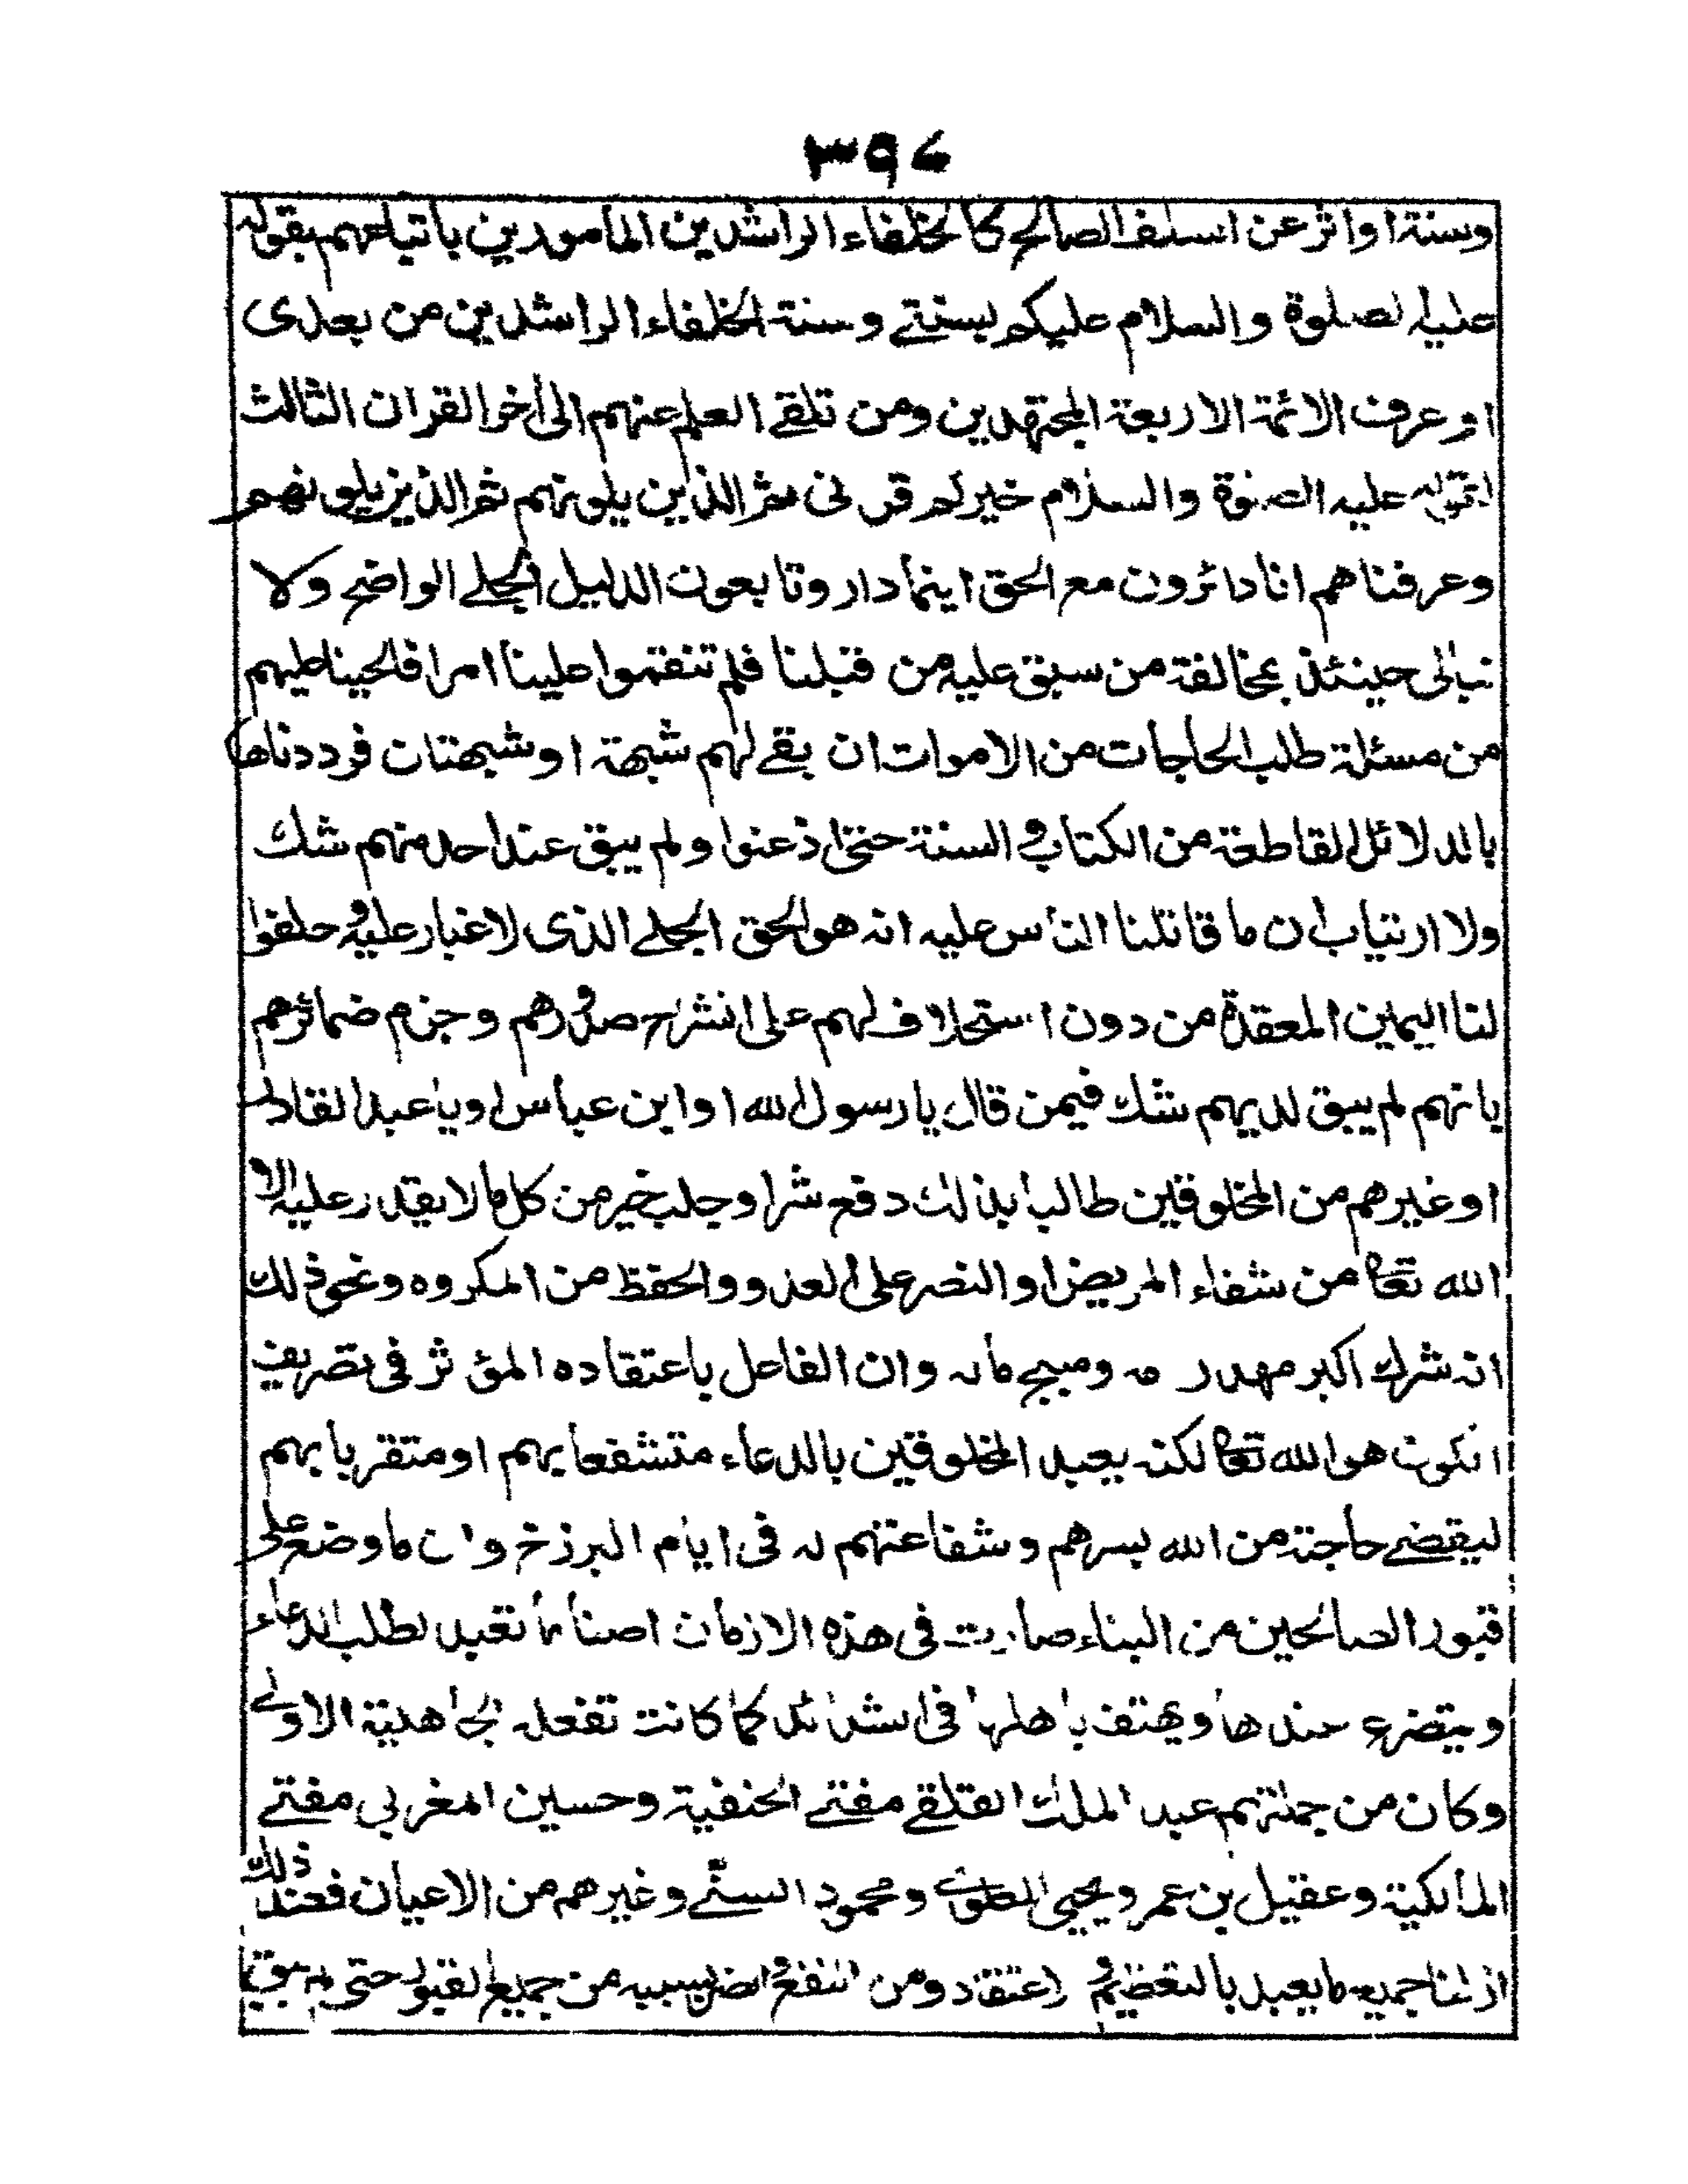 ٣٩٤
وسنة او اثر عن السلف الصالح كالخلفاء الراشدين المأمورين باتباعهم بقوله
عليه الصلوة والسلام عليكم بسنتي وسنة الخلفاء الراشدين من بعدى
او عرف الائمة الاربعة المجتهدين ومن تلقے العلم عنهم الى أخر القران الثالث
لقوله عليه الصلوة والسلام خيركم قرنى ثم الذين يلونهم ثم الذين يلونهم
وعرفناهم انا دائرون مع الحق اينما دار وتابعون الدليل الجلے الواضح ولا
نبالى حينئذ بمخالفة من سبق عليه من قبلنا فلم تنقموا علينا امرا فالحينا عليهم
من مسئلة طلب الحاجات من الاموات ان بقے لهم شبهة او شبهتان فرددناها
بالدلائل القاطعة من الكتاب و السنة حتى اذعنوا ولم يبق عند احد منهم شك
ولا ارتياب ان ما قاتلنا الناس عليه انه هو الحق الجلے الذى لا غبار عليه و حلفوا
لنا اليمين المعقدة من دون استحلاف لهم على انشرح صدورهم وجزم ضمائرهم
بانهم لم يبق لديهم شك فيمن قال يا رسول الله او ابن عباس او يا عبد القادر
او غيرهم من المخلوقين طالبا بذلك دفع شر او جلب خير من كل ما لا يقدر عليه الا
الله تعا من شفاء المريض او النصر على العدو والحفظ من المكروه ونحو ذلك
انه شرك اكبر مهدر مه ومبيح ماله وان الفاعل باعتقاده المؤثر فى تصريف
الكون هو الله تعا لكنه يعبد المخلوقين بالدعاء متشفعا بهم او متقربا بهم
ليقضے حاجته من الله بسرهم وشفاعتهم له فى ايام البرزخ وان ما وضع على
قبور الصالحين من البناء صارت فى هذه الازمان اصناما تعبد لطلب الدعاء
ويتضرع عندها ويهتف باهلها فى الشدائد كما كانت تفعله الجاهلية الاولے
وكان من جملتهم عبد الملك القلقے مفتے الحنفية وحسين المغربي مفتے
المالكية وعقيل بن عمر ويحيى المطوے ومحمود السنّے وغيرهم من الاعيان فعند ذلك
ازلنا جميع ما يعبد بالتعظيم و اعتقاد ومن النفع و الضر بسببه من جميع القبور حتى لم يبق